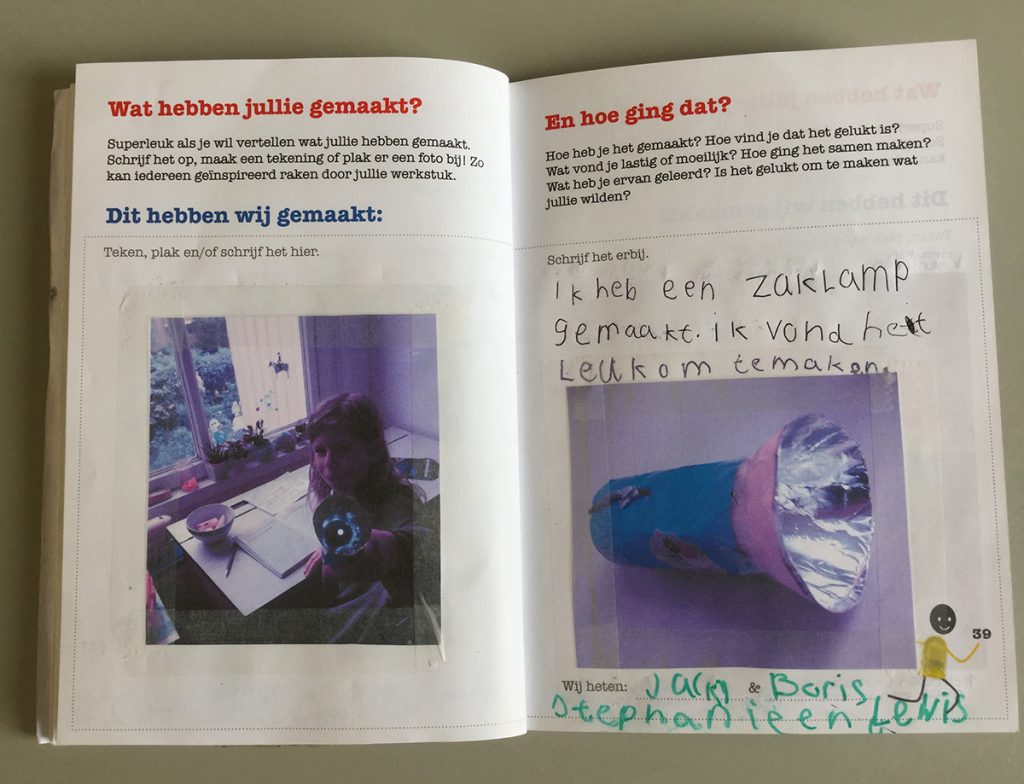 Wat hebben jullie gemaakt?
Superleuk als je wil vertellen wat jullie hebben gemaakt.
Schrijf het op, maak een tekening of plak er een foto bij! Zo
kan iedereen geïnspireerd raken door jullie werkstuk.
Dit hebben wij gemaakt:
Teken, plak en/of schrijf het hier.
En hoe ging dat?
Hoe heb je het gemaakt? Hoe vind je dat het gelukt is?
Wat vond je lastig of moeilijk? Hoe ging het samen maken?
Wat heb je ervan geleerd? Is het gelukt om te maken wat
jullie wilden?
Schrijf het erbij.
ik heb een ZAKLAMP
gemaakt. ik vond het
Leuk om temaken.
39
Wij heten: & Boris
Stephanie en